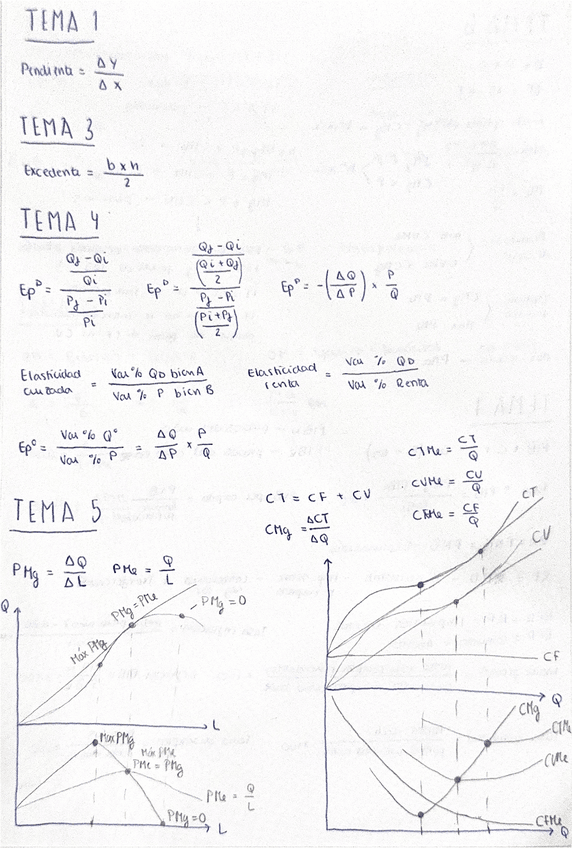 TEMA 1
Pendiente = ΔY / ΔX
TEMA 3
Excedente = b x h / 2
TEMA 4
Ep^D = ((Qf - Qi) / Qi) / ((Pf - Pi) / Pi)
Ep^D = ((Qf - Qi) / ((Qi + Qf) / 2)) / ((Pf - Pi) / ((Pi + Pf) / 2))
Ep^D = -(ΔQ / ΔP) x P / Q
Elasticidad cruzada = Var % QD bien A / Var % P bien B
Elasticidad renta = Var % QD / Var % Renta
Ep^O = Var % Q^O / Var % P = ΔQ / ΔP x P / Q
TEMA 5
CT = CF + CV
CMg = ΔCT / ΔQ
CTMe = CT / Q
CVMe = CV / Q
CFMe = CF / Q
PMg = ΔQ / ΔL
PMe = Q / L
Q
Máx PMg
PMg = PMe
PMg = 0
L
Max PMg
Máx PMe
PMe = PMg
PMe = Q / L
PMg = 0
L
CT
CV
CF
Q
CMg
CTMe
CVMe
CFMe
Q